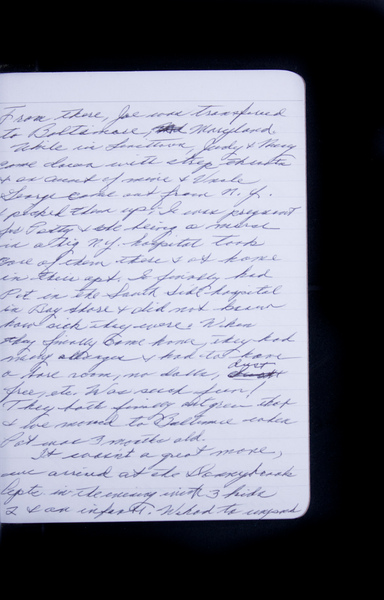 From there, Joe was transferred
to Baltimore, Maryland.
While in Levittown, Judy & Mary
came down with strep throats
& an aunt of mine & Uncle
George came out from N.Y.
& picked them up. I was pregnant
for Patty & she being a nurse
in a big N.Y. hospital took
care of them there & at home
in their apt. I finally had
Pat in the South Side hospital
in Bay Shore & did not know
how sick they were. When
they finally came home, they had
many allergies & had to have
a bare room, no dolls, dust
free, etc. Was such fun!
They both finally outgrew that
& we moved to Baltimore when
Pat was 3 months old.
It wasn't a great move,
we arrived at the Donnybrook
Apts in the evening with 3 kids
2 & an infant. We had to unpack